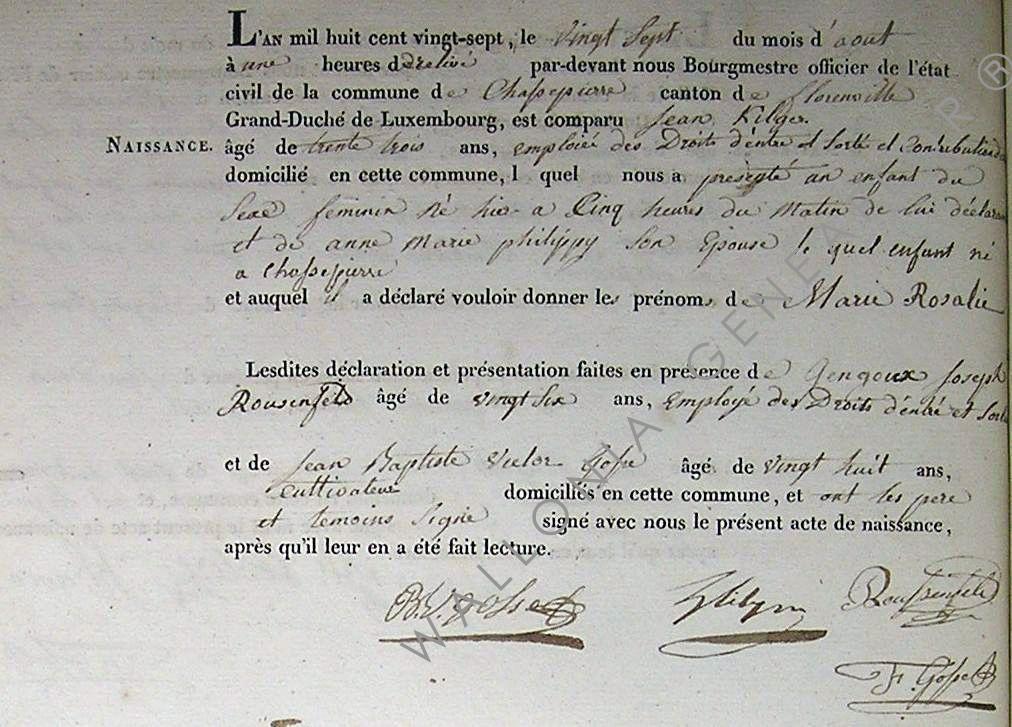 L'AN mil huit cent vingt-sept, le vingt sept du mois d'aout
à une heures d relivé par-devant nous Bourgmestre officier de l'état
civil de la commune de Chassepierre canton de florenville
Grand-Duché de Luxembourg, est comparu Jean Kilger
NAISSANCE. âgé de trente trois ans, emploié des Droits d'entré et Sorté et
domicilié en cette commune, l quel nous a présenté an enfant du
Sexe feminin Né hier a Cinq heures du Matin de lui déclarant
et de anne Marie philippy Son Epouse le quel enfant né
a Chassepierre
et auquel il a déclaré vouloir donner les prénoms de Marie Rosalie
Lesdites déclaration et présentation faites en présence de Gengoux Joseph
Rousenfeld âgé de vingt Six ans, Employé des Droits d'entré et Sorté
et de Jean Baptiste Victor Gosse âgé de vingt huit ans,
Cultivateur domiciliés en cette commune, et ont les pere
et temoins Signé signé avec nous le présent acte de naissance,
après qu'il leur en a été fait lecture.
B. V. Gosse Rousenfeld
F. Gosse
WALLONIA GENEA ®